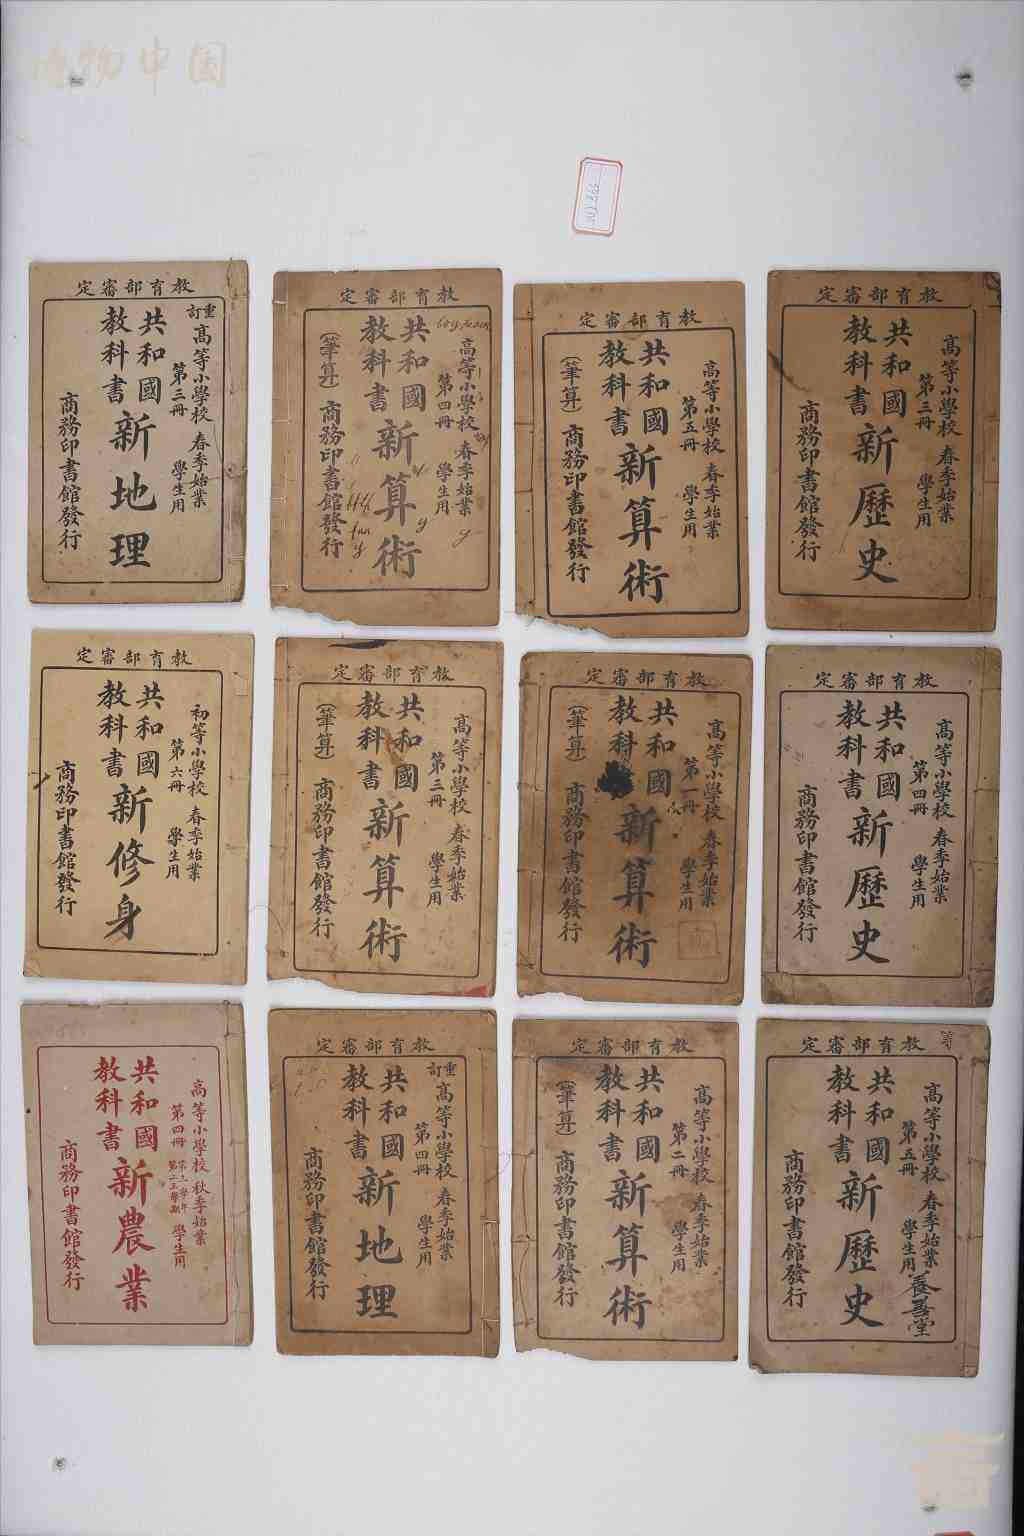 博物中国
教育部審定
重訂
共和國教科書
新地理
高等小學校 春季始業
第三冊 學生用
商務印書館發行
教育部審定
共和國教科書
新算術
(筆算)
高等小學校 春季始業
第四冊 學生用
商務印書館發行
教育部審定
共和國教科書
新算術
(筆算)
高等小學校 春季始業
第五冊 學生用
商務印書館發行
教育部審定
共和國教科書
新歷史
高等小學校 春季始業
第三冊 學生用
商務印書館發行
教育部審定
共和國教科書
新修身
初等小學校 春季始業
第六冊 學生用
商務印書館發行
教育部審定
共和國教科書
新算術
(筆算)
高等小學校 春季始業
第三冊 學生用
商務印書館發行
教育部審定
共和國教科書
新算術
(筆算)
高等小學校 春季始業
第一冊 學生用
商務印書館發行
教育部審定
共和國教科書
新歷史
高等小學校 春季始業
第四冊 學生用
商務印書館發行
共和國教科書
新農業
高等小學校 秋季始業
第四冊 學生用
商務印書館發行
教育部審定
重訂
共和國教科書
新地理
高等小學校 春季始業
第四冊 學生用
商務印書館發行
教育部審定
共和國教科書
新算術
(筆算)
高等小學校 春季始業
第二冊 學生用
商務印書館發行
教育部審定
共和國教科書
新歷史
高等小學校 春季始業
第五冊 學生用
養善堂
商務印書館發行